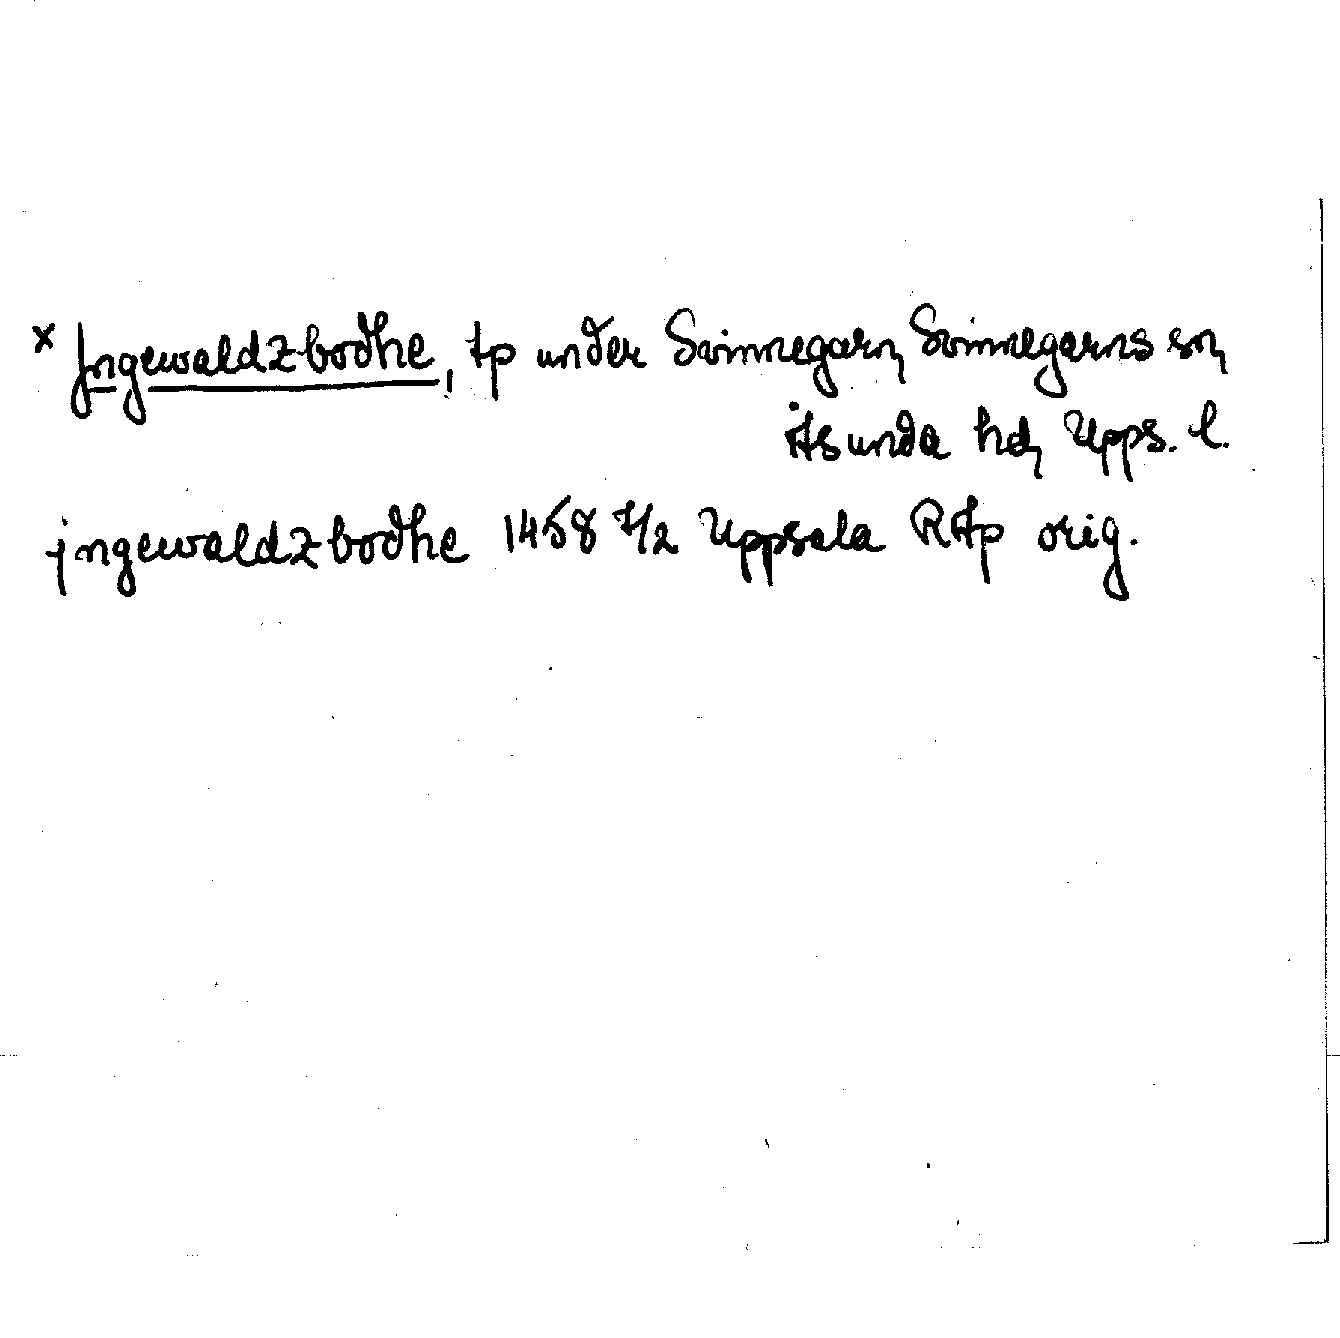 x Jngewaldzbodhe, tp under Svinnegarn, Svinnegarns sn,
Åsunda hd, Upps. l.
jngewaldzbodhe 1458 7/2 Uppsala RAp orig.